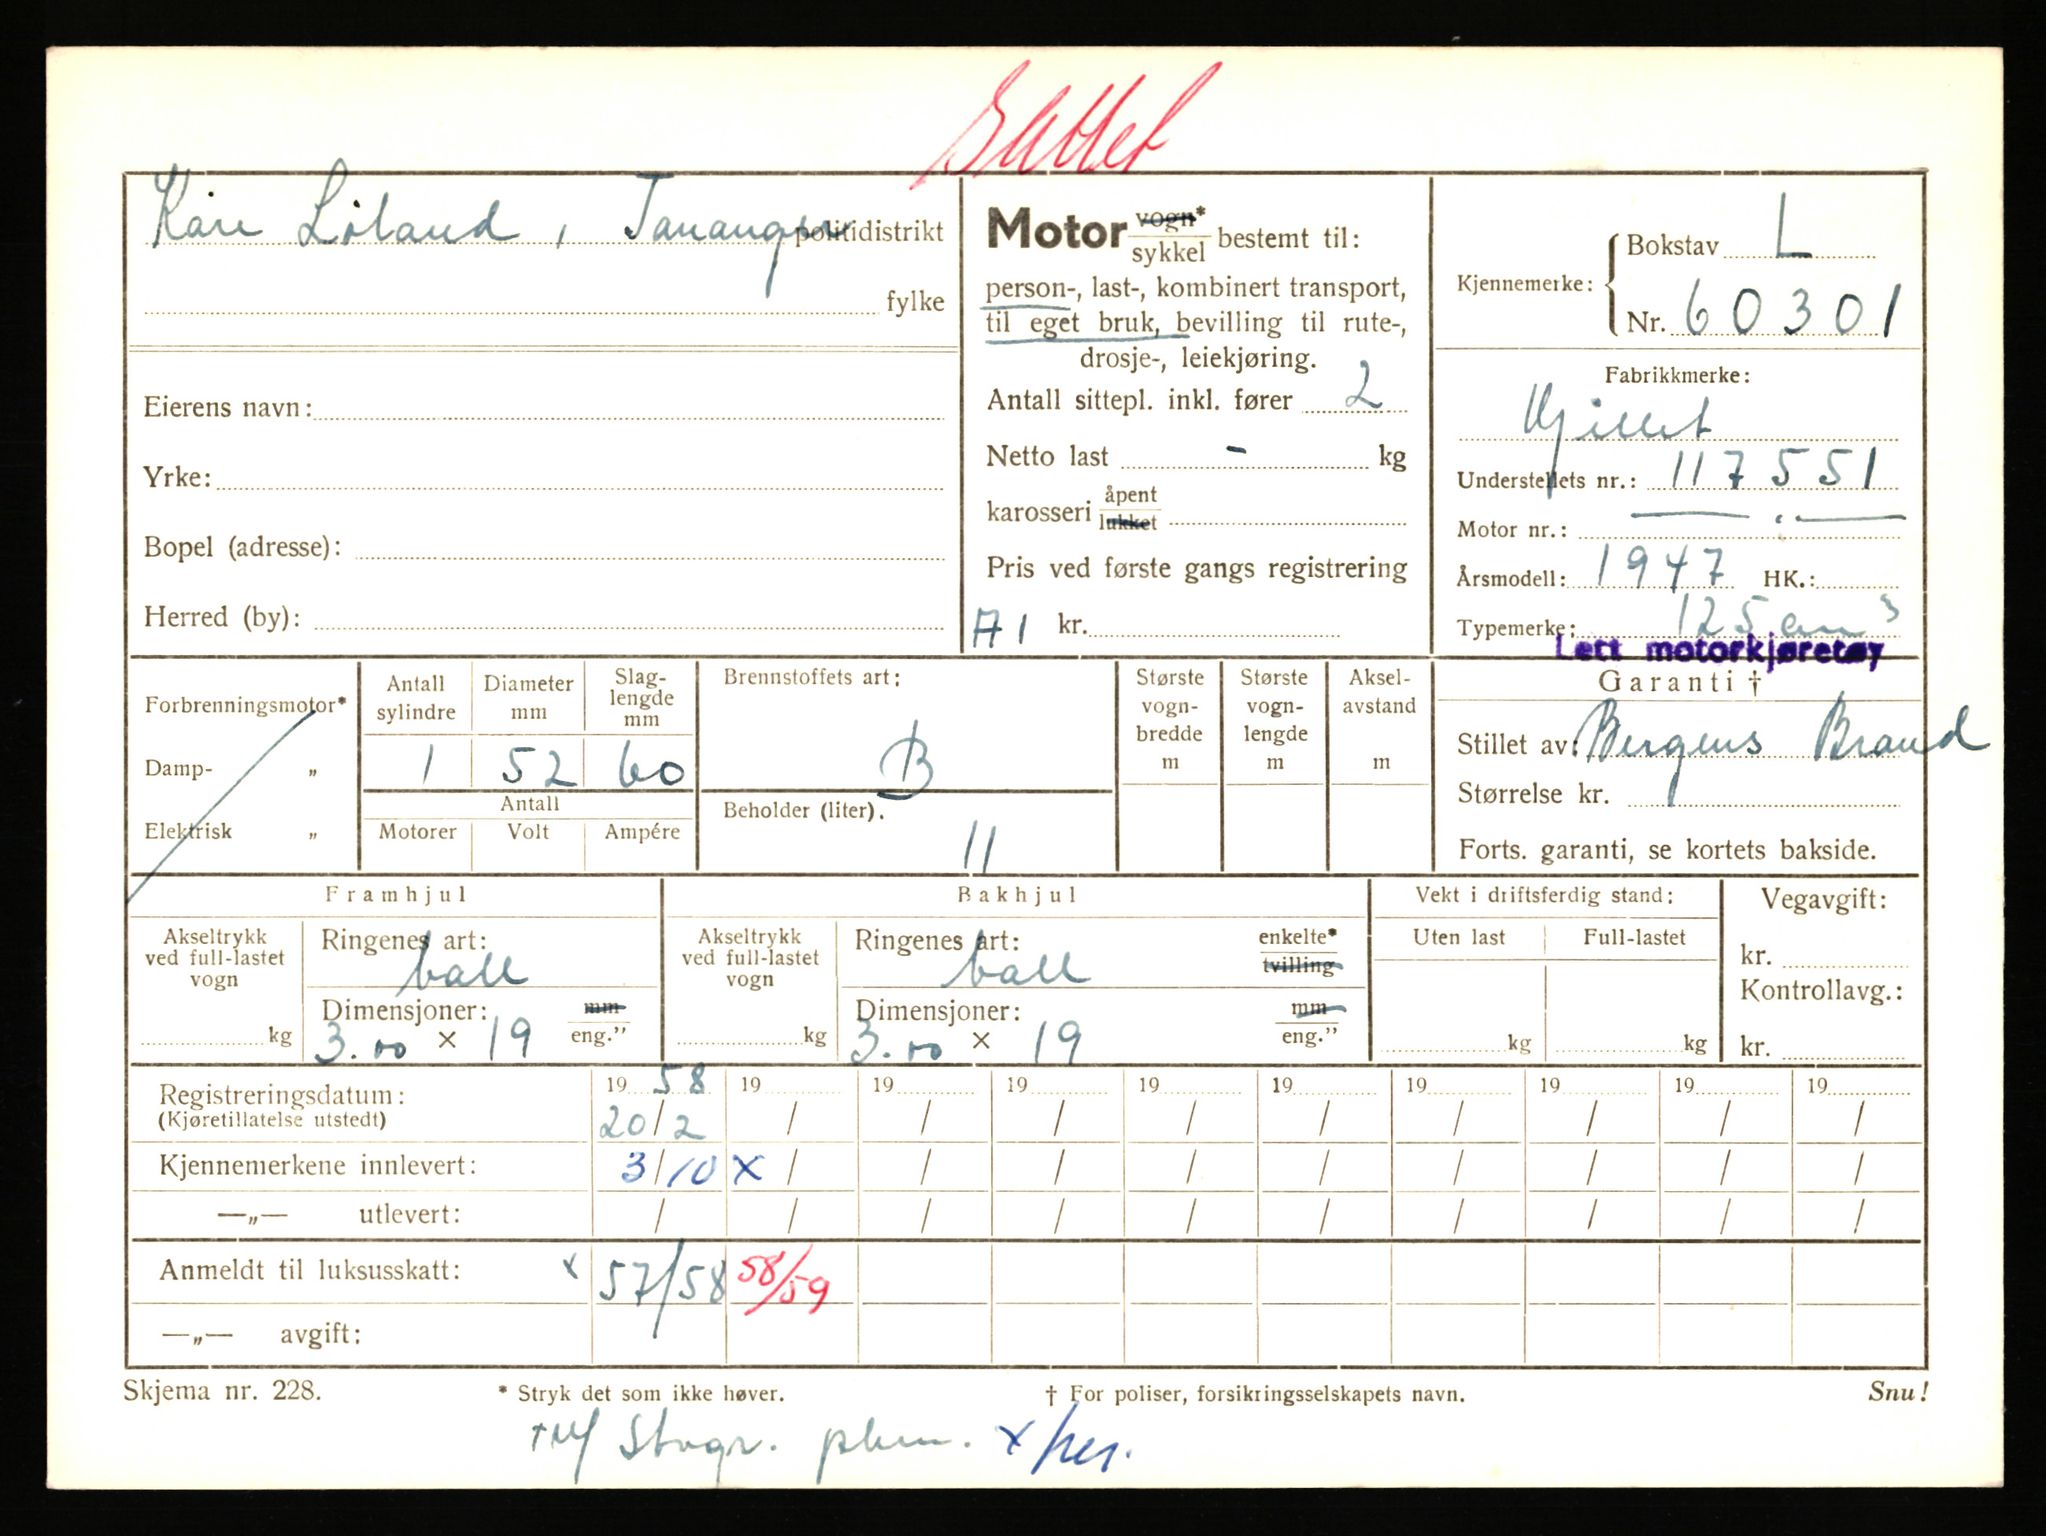 Slettet
Kåre Löland, Tananger politidistrikt
fylke
Eierens navn:
Yrke:
Bopel (adresse):
Herred (by):
Motor vogn* sykkel bestemt til:
person-, last-, kombinert transport,
til eget bruk, bevilling til rute-,
drosje-, leiekjøring.
Antall sittepl. inkl. fører 2
Netto last - kg
karosseri åpent lukket
Pris ved første gangs registrering
A1 kr.
Kjennemerke: Bokstav L
Nr. 60301
Fabrikkmerke:
Gillet
Understellets nr.: 117551
Motor nr.:
Årsmodell: 1947 HK.:
Typemerke: 125 cm3
Lett motorkjøretøy
Forbrenningsmotor*
Damp- „
Elektrisk „
Antall sylindre
Diameter mm
Slag- lengde mm
1 52 60
Antall
Motorer Volt Ampére
Brennstoffets art:
B
Beholder (liter).
11
Største vogn- bredde m
Største vogn- lengde m
Aksel- avstand m
Garanti †
Stillet av: Bergens Brand
Størrelse kr.
Forts. garanti, se kortets bakside.
Framhjul
Akseltrykk ved full-lastet vogn
kg
Ringenes art:
ball
Dimensjoner: mm
3.00 × 19 eng.”
Bakhjul
Akseltrykk ved full-lastet vogn
kg
Ringenes art: enkelte*
ball tvilling
Dimensjoner: mm
3.00 × 19 eng.”
Vekt i driftsferdig stand:
Uten last Full-lastet
kg kg
Vegavgift:
kr.
Kontrollavg.:
kr.
Registreringsdatum: 19 58 19 19 19 19 19 19 19 19 19
(Kjøretillatelse utstedt) 20/2 / / / / / / / / /
Kjennemerkene innlevert: 3/10 x / / / / / / / / /
—„— utlevert: / / / / / / / / / /
Anmeldt til luksusskatt: x 57/58 58/59
—„— avgift:
Skjema nr. 228. * Stryk det som ikke høver. † For poliser, forsikringsselskapets navn. Snu!